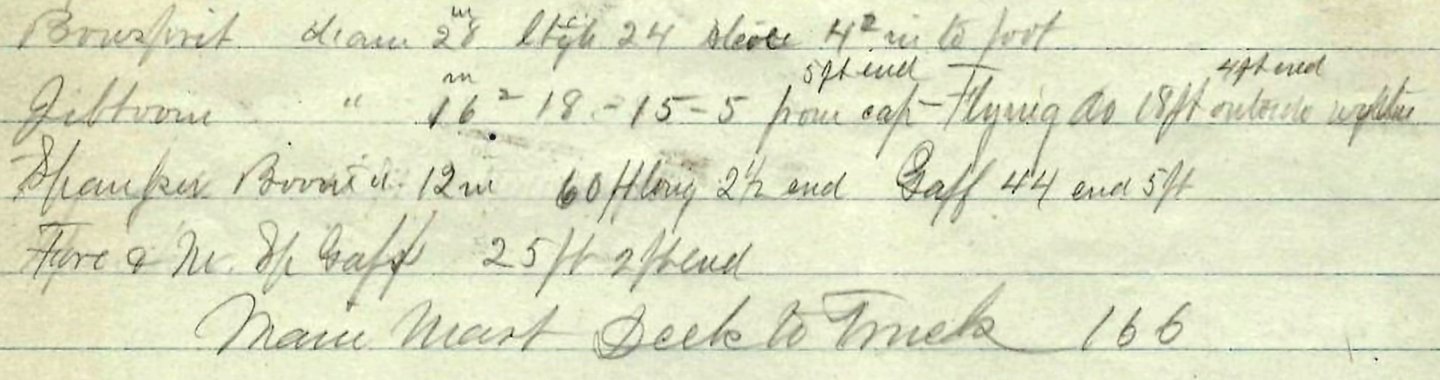 Bowsprit diam 28 in 24 4² in to foot
Jibboom " 16² in 18 - 15 - 5 from cap 5ft end - Flying do 18ft outside 4ft end
Spanker Boom d. 12 in 60 ft long 2½ end Gaff 44 end 5ft
Fore & M. Sp Gaff 25 ft 2ft end
Main Mast Deck to Truck 166